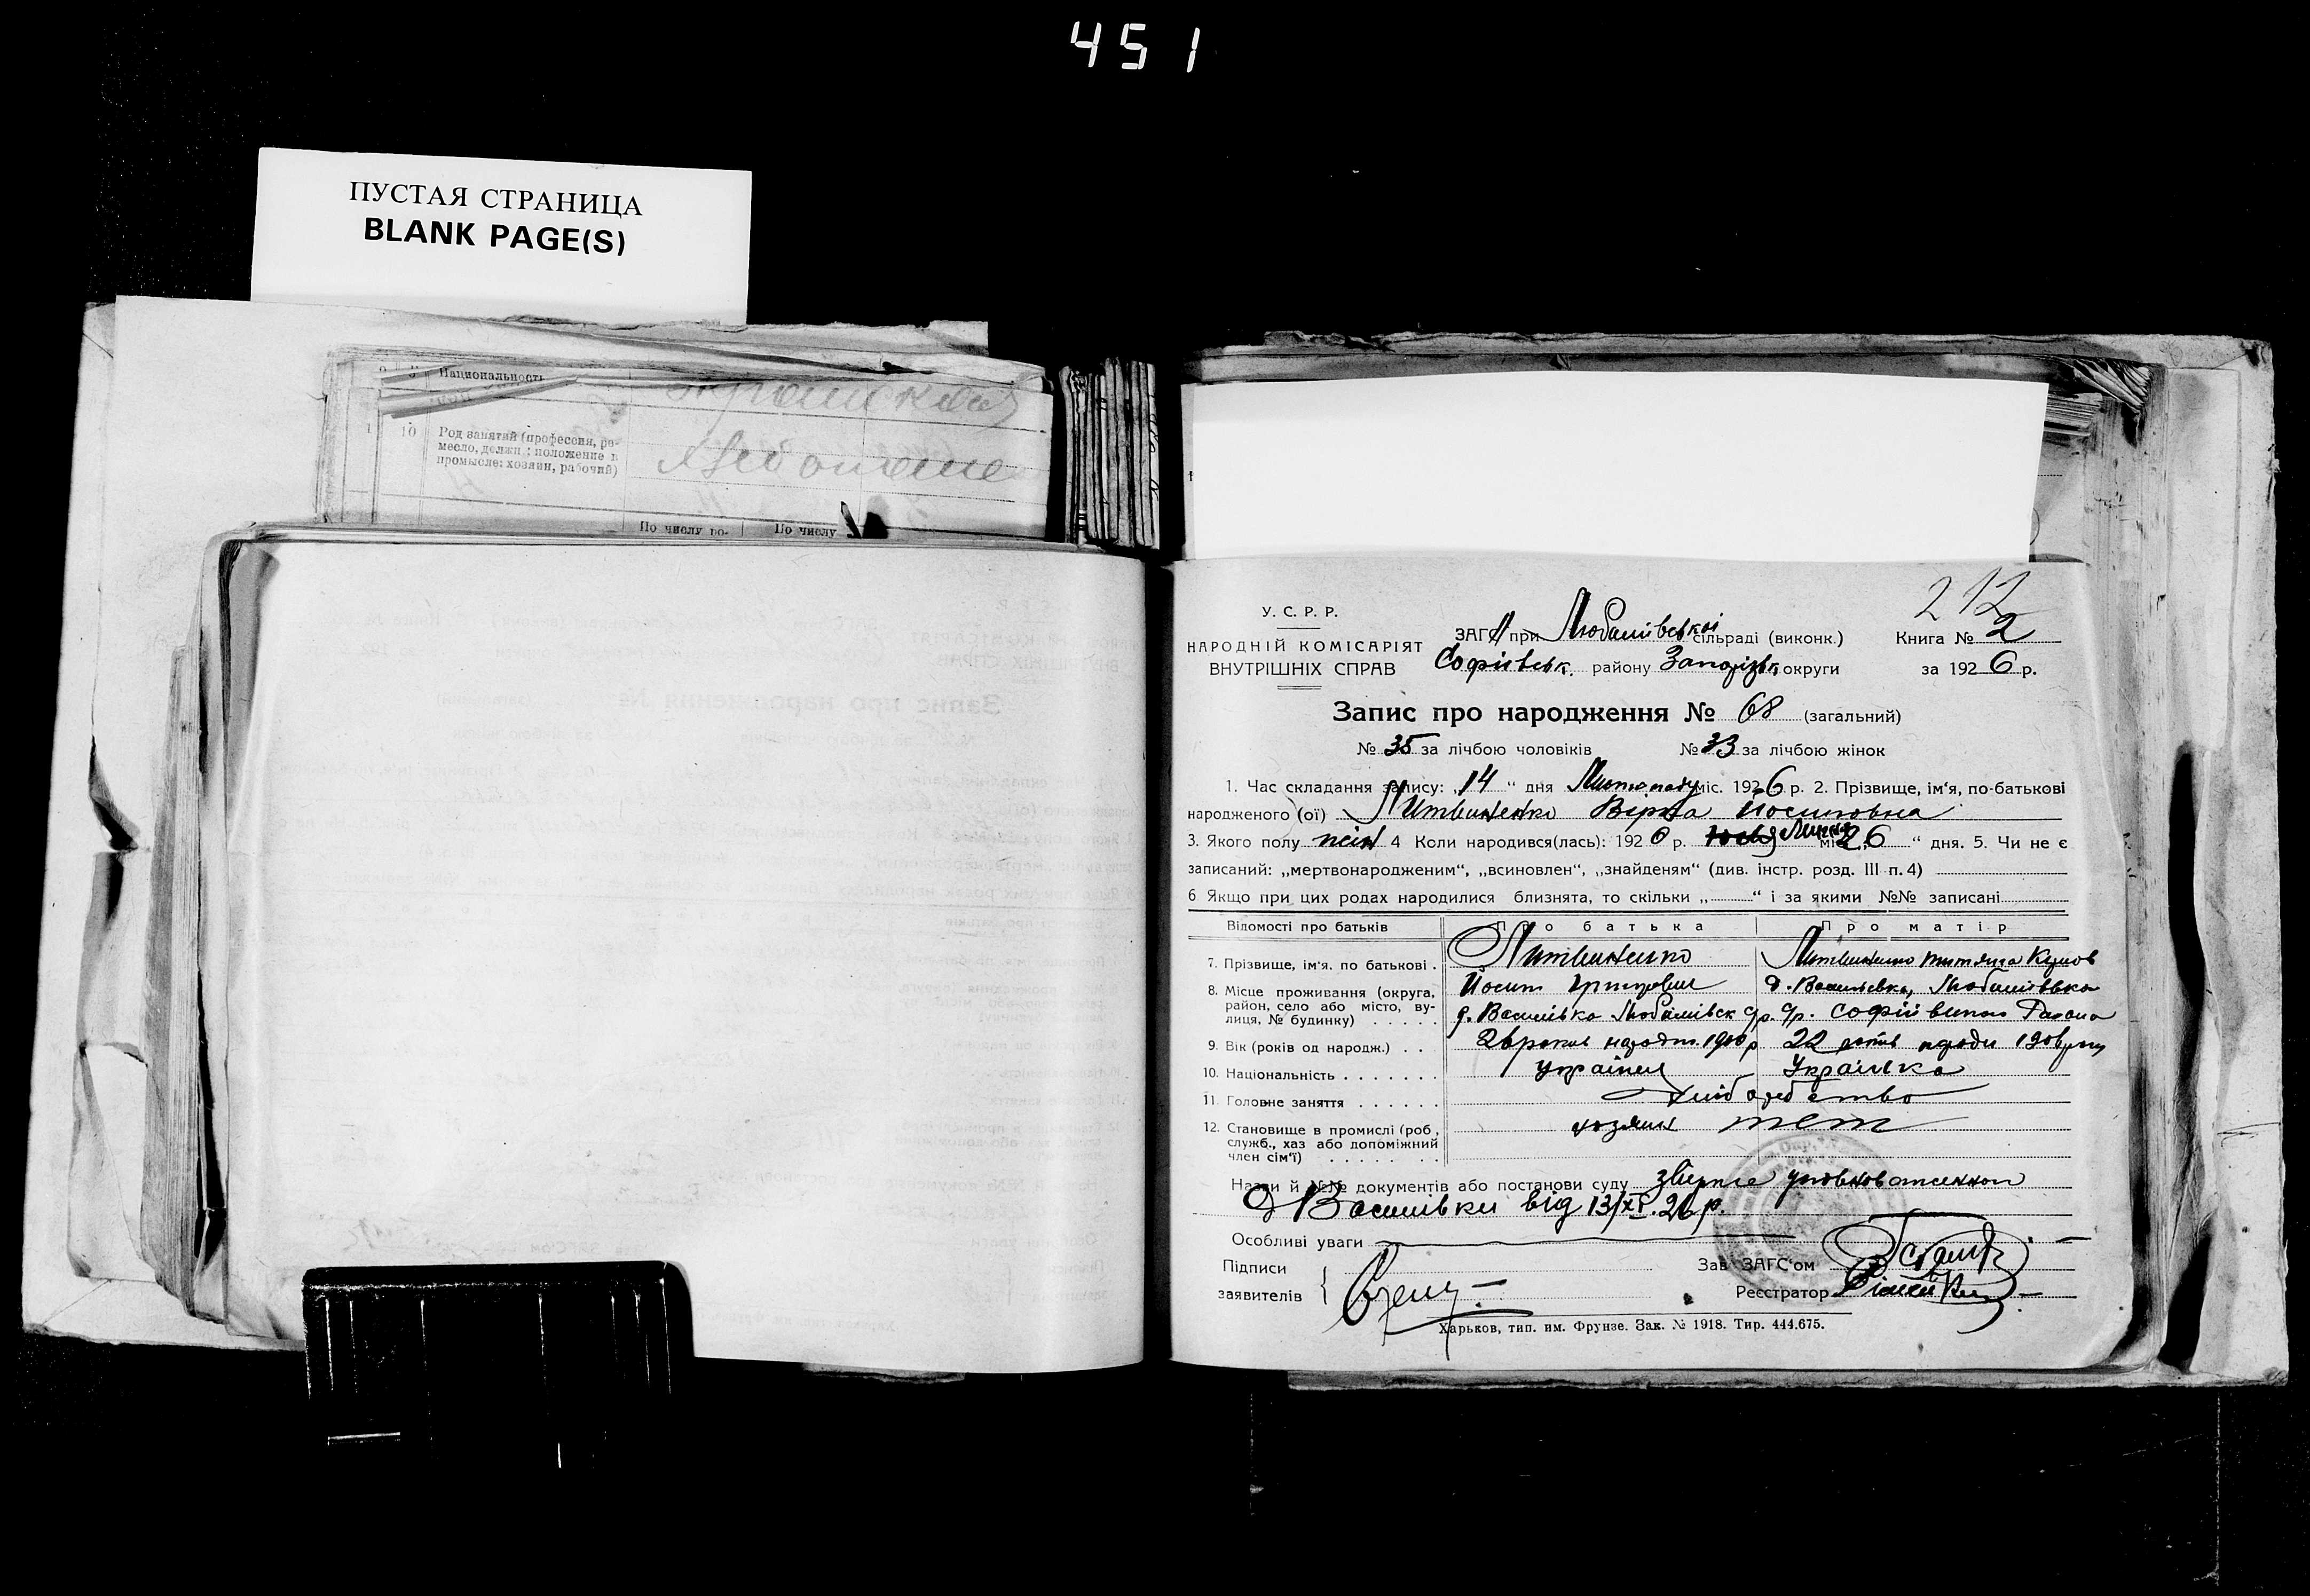 451
ПУСТАЯ СТРАНИЦА
BLANK PAGE(S)
Национальность
10 Род занятий (профессия, ре-
месло, должн.: положение в
промысле: хозяин, рабочий)
По числу ро- По числу
212
У. С. Р. Р.
НАРОДНІЙ КОМІСАРІЯТ
ВНУТРІШНІХ СПРАВ
ЗАГС при Любимівській сільраді (виконк.)
Софіївськ. району Запоріжськ округи
Книга № 2
за 1926 р.
Запис про народження № 68 (загальний)
№ 35 за лічбою чоловіків № 33 за лічбою жінок
1. Час складання запису: „14“ дня Листопаду міс. 1926 р. 2. Прізвище, ім'я, по-батькові
народженого (ої) Литвиненко Вірка Йосиповна
3. Якого полу жін 4 Коли народився(лась): 1926 р. міс. 26 “ дня. 5. Чи не є
записаний: „мертвонародженим“, „всиновлен“, „знайденям“ (див. інстр. розд. III п. 4)
6 Якщо при цих родах народилися близнята, то скільки „ “ і за якими №№ записані
Відомості про батьків Про батька Про матір
7. Прізвище, ім'я, по батькові . Литвиненко Йосип Литвиненко
8. Місце проживання (округа,
район, село або місто, ву-
лиця, № будинку) . . . . . д. Василівка Любимівськ с/р. д. Василевка, Любимівка с/р. Софіївського Района
9. Вік (років од народж.) . . 26 роков народж. 1900 р 22 років
10. Національність . . . . . . . українец Українка
11 Головне заняття . . . . . . Хліборобство
12. Становище в промислі (роб.,
служб., хаз або допоміжний
член сім'ї) . . . . . . . . хозяин
Назви й №№ документів або постанови суду уповноваженного
Василівки від 13/XI. 26 р.
Особливі уваги
Підписи
заявителів
Зав ЗАГС'ом
Реєстратор
Харьков, тип. им. Фрунзе. Зак. № 1918. Тир. 444.675.